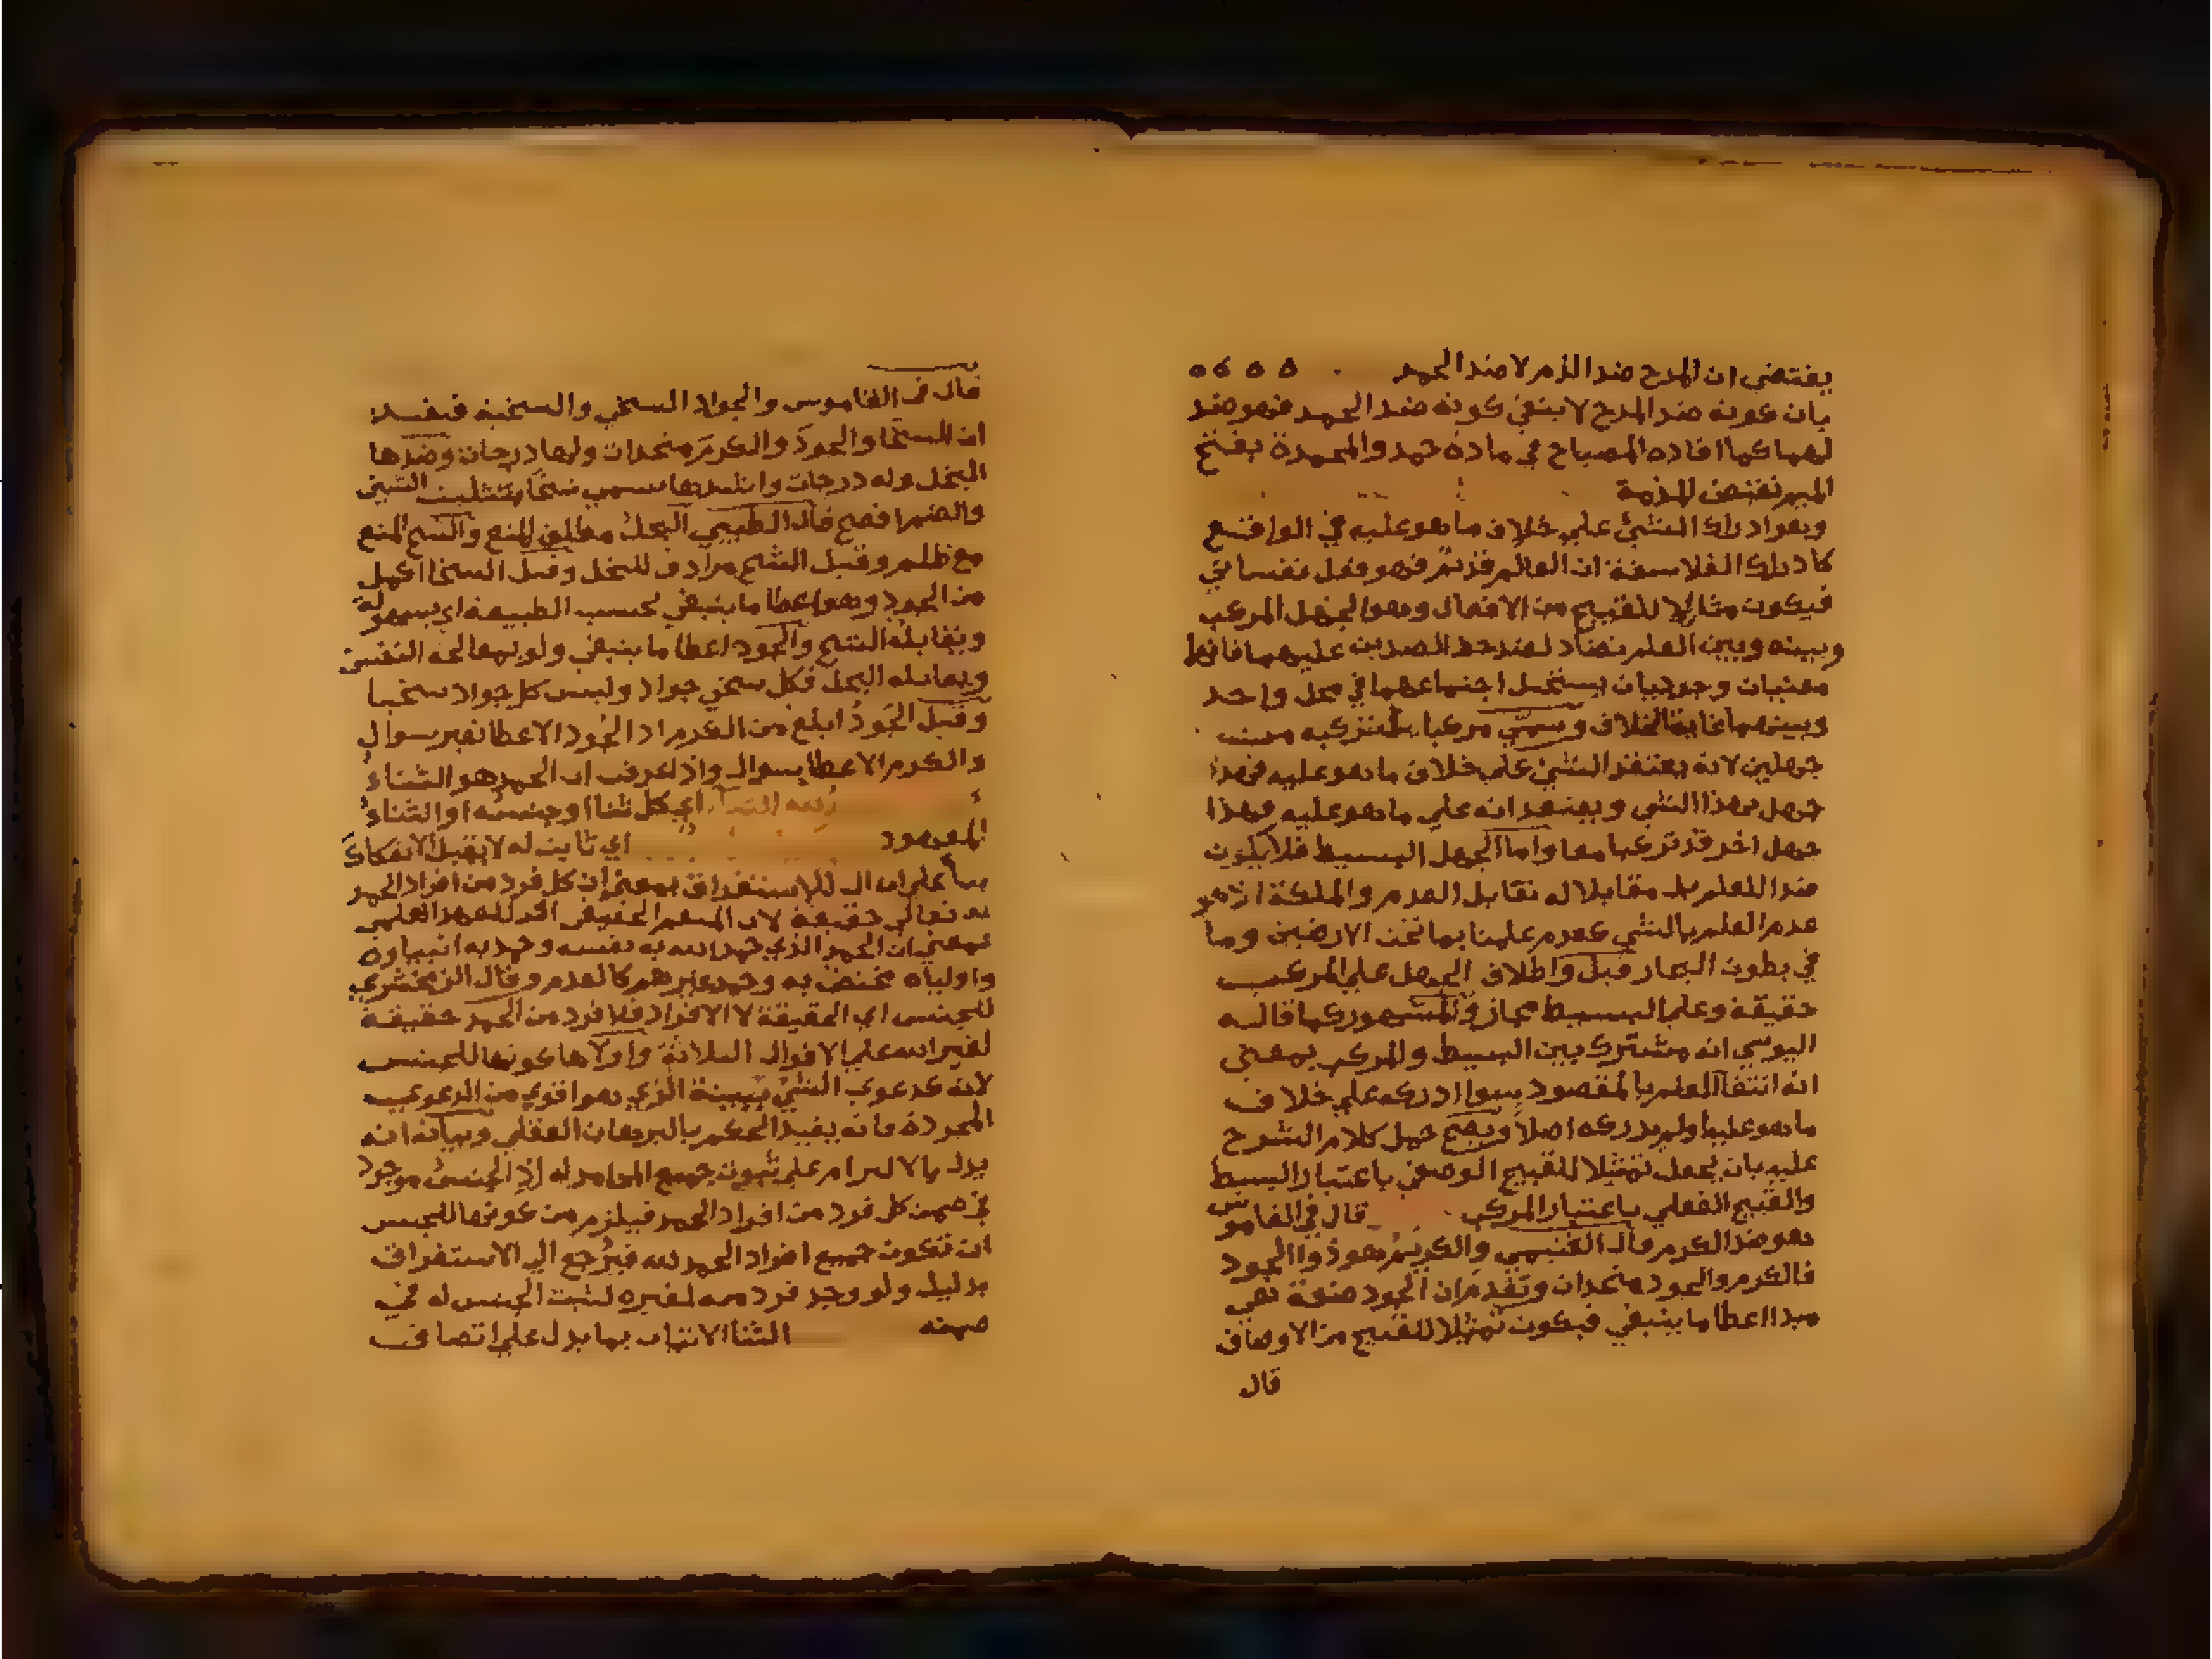 يقتضي ان المدح ضد الذم لا ضد الحمد
بان كونه ضد المدح لا ينفي كونه ضد الحمد فهو ضد
لهما كما افاده المصباح في مادة حمد والمحمدة بفتح
الميم نقيض المذمة
وهو ادراك الشئ علي خلاف ما هو عليه في الواقع
كادراك الفلاسفة ان العالم قديم فهو فعل نفساني
فيكون مثالا للقبيح من الافعال وهو الجهل المركب
وبينه وبين العلم تضاد لصدق حد الضدين عليهما فانهما
معنيان وجوديان يستحيل اجتماعهما في محل واحد
وبينهما غاية الخلاف وسمي مركبا لتركبه من
جهلين لانه يعتقد الشئ علي خلاف ما هو عليه فهذا
جهل بهذا الشي ويعتقد انه علي ما هو عليه وهذا
جهل اخر قد تركبا معا واما الجهل البسيط فلا يكون
ضدا للعلم بل مقابلا له تقابل العدم والملكة اذ هو
عدم العلم بالشي كعدم علمنا بما تحت الارضين وما
في بطون البحار قيل واطلاق الجهل علي المركب
حقيقة وعلي البسيط مجاز والمشهور كما قاله
اليوسي انه مشترك بين البسيط والمركب بمعني
انه انتفا العلم بالمقصود سوا ادركه علي خلاف
ما هو عليه او لم يدركه اصلا ويصح حمل كلام الشرح
عليه بان يجعل تمثيلا للقبيح الوصفي باعتبار البسيط
والقبيح الفعلي باعتبار المركب قال في القاموس
هو ضد الكرم قال القشيري والكريم هو ذوا الجود
فالكرم والجود متحدان وتقدم ان الجود صفة هي
مبدا اعطا ما ينبغي فيكون تمثيلا للقبيح من الاوصاف
قال
قال في القاموس والجواد السخي والسخية
ان السخا والجود والكرم متحدات ولها درجات وضدها
البخل وله درجات واشدها يسمي شحا بتثليث الشين
والضم افصح قال الطيبي البخل مطلق المنع والشح المنع
مع ظلم وقيل الشح مرادف للبخل وقيل السخا اكمل
من الجود وهو اعطا ما ينبغي بحسب الطبيعة اي بسهولة
ويقابله الشح والجود اعطا ما ينبغي ولو بمعالجة النفس
ويقابله البخل فكل سخي جواد وليس كل جواد سخيا
وقيل الجود ابلغ من الكرم اذ الجود الاعطا بغير سوال
والكرم الاعطا بسوال واذا عرفت ان الحمد هو الثناء
اي كل ثنا او جنسه او الثناء
المعهود اي ثابت له لا يقبل الانفكاك
علي ان ال للاستغراق بمعني ان كل فرد من افراد الحمد
له تعالي حقيقة لان المنعم الحقيقي او للعهد العلمي
بمعني ان الحمد الذي حمد الله به نفسه وحمده به انبياوه
واولياه مختص به وحمد غيرهم كالعدم وقال الزمخشري
للجنس اي الحقيقة لا الافراد فلا فرد من الحمد حقيقة
لغير الله علي الاقوال الثلاثة واولاها كونها للجنس
لانه كدعوي الشئ ببينة الذي هو اقوي من الدعوي
المجردة فانه يفيد الحكم بالبرهان العقلي وبيانه انه
يدل بالالتزام علي ثبوت جميع المحامد له اذ الجنس موجود
في ضمن كل فرد من افراد الحمد فيلزم من كونها للجنس
ان تكون جميع افراد الحمد لله فيرجع الي الاستغراق
بدليل ولو وجد فرد منه لغيره لثبت الجنس له في
ضمنه الثنا الاتيان بما يدل علي اتصاف